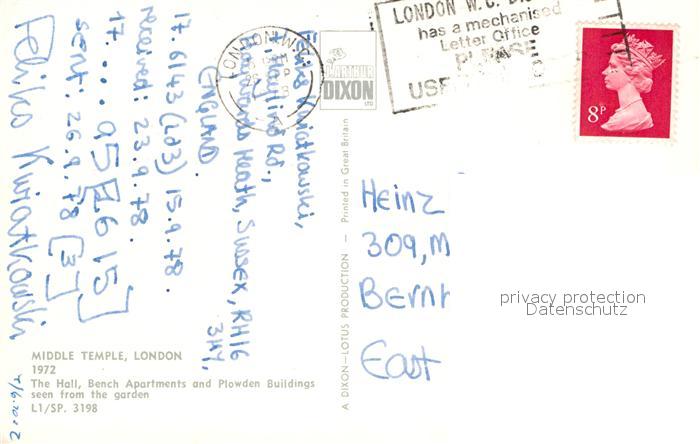 LONDON W.C.
has a mechanised
Letter Office
PLEASE
USE
LONDON W.C.
8P
ARTHUR
DIXON
LTD
Feliks Kwiatkowski,
Rd.,
Haywards Heath, Sussex, RH16
3HY,
ENGLAND.
17. 6143 (203) 15.9.78.
received: 23.9.78.
17....
sent: 26.9.78 [3]
Feliks Kwiatkowski
Heinz
309, M
Bern
East
privacy protection
Datenschutz
A DIXON—LOTUS PRODUCTION — Printed in Great Britain
MIDDLE TEMPLE, LONDON
1972
The Hall, Bench Apartments and Plowden Buildings
seen from the garden
L1/SP. 3198